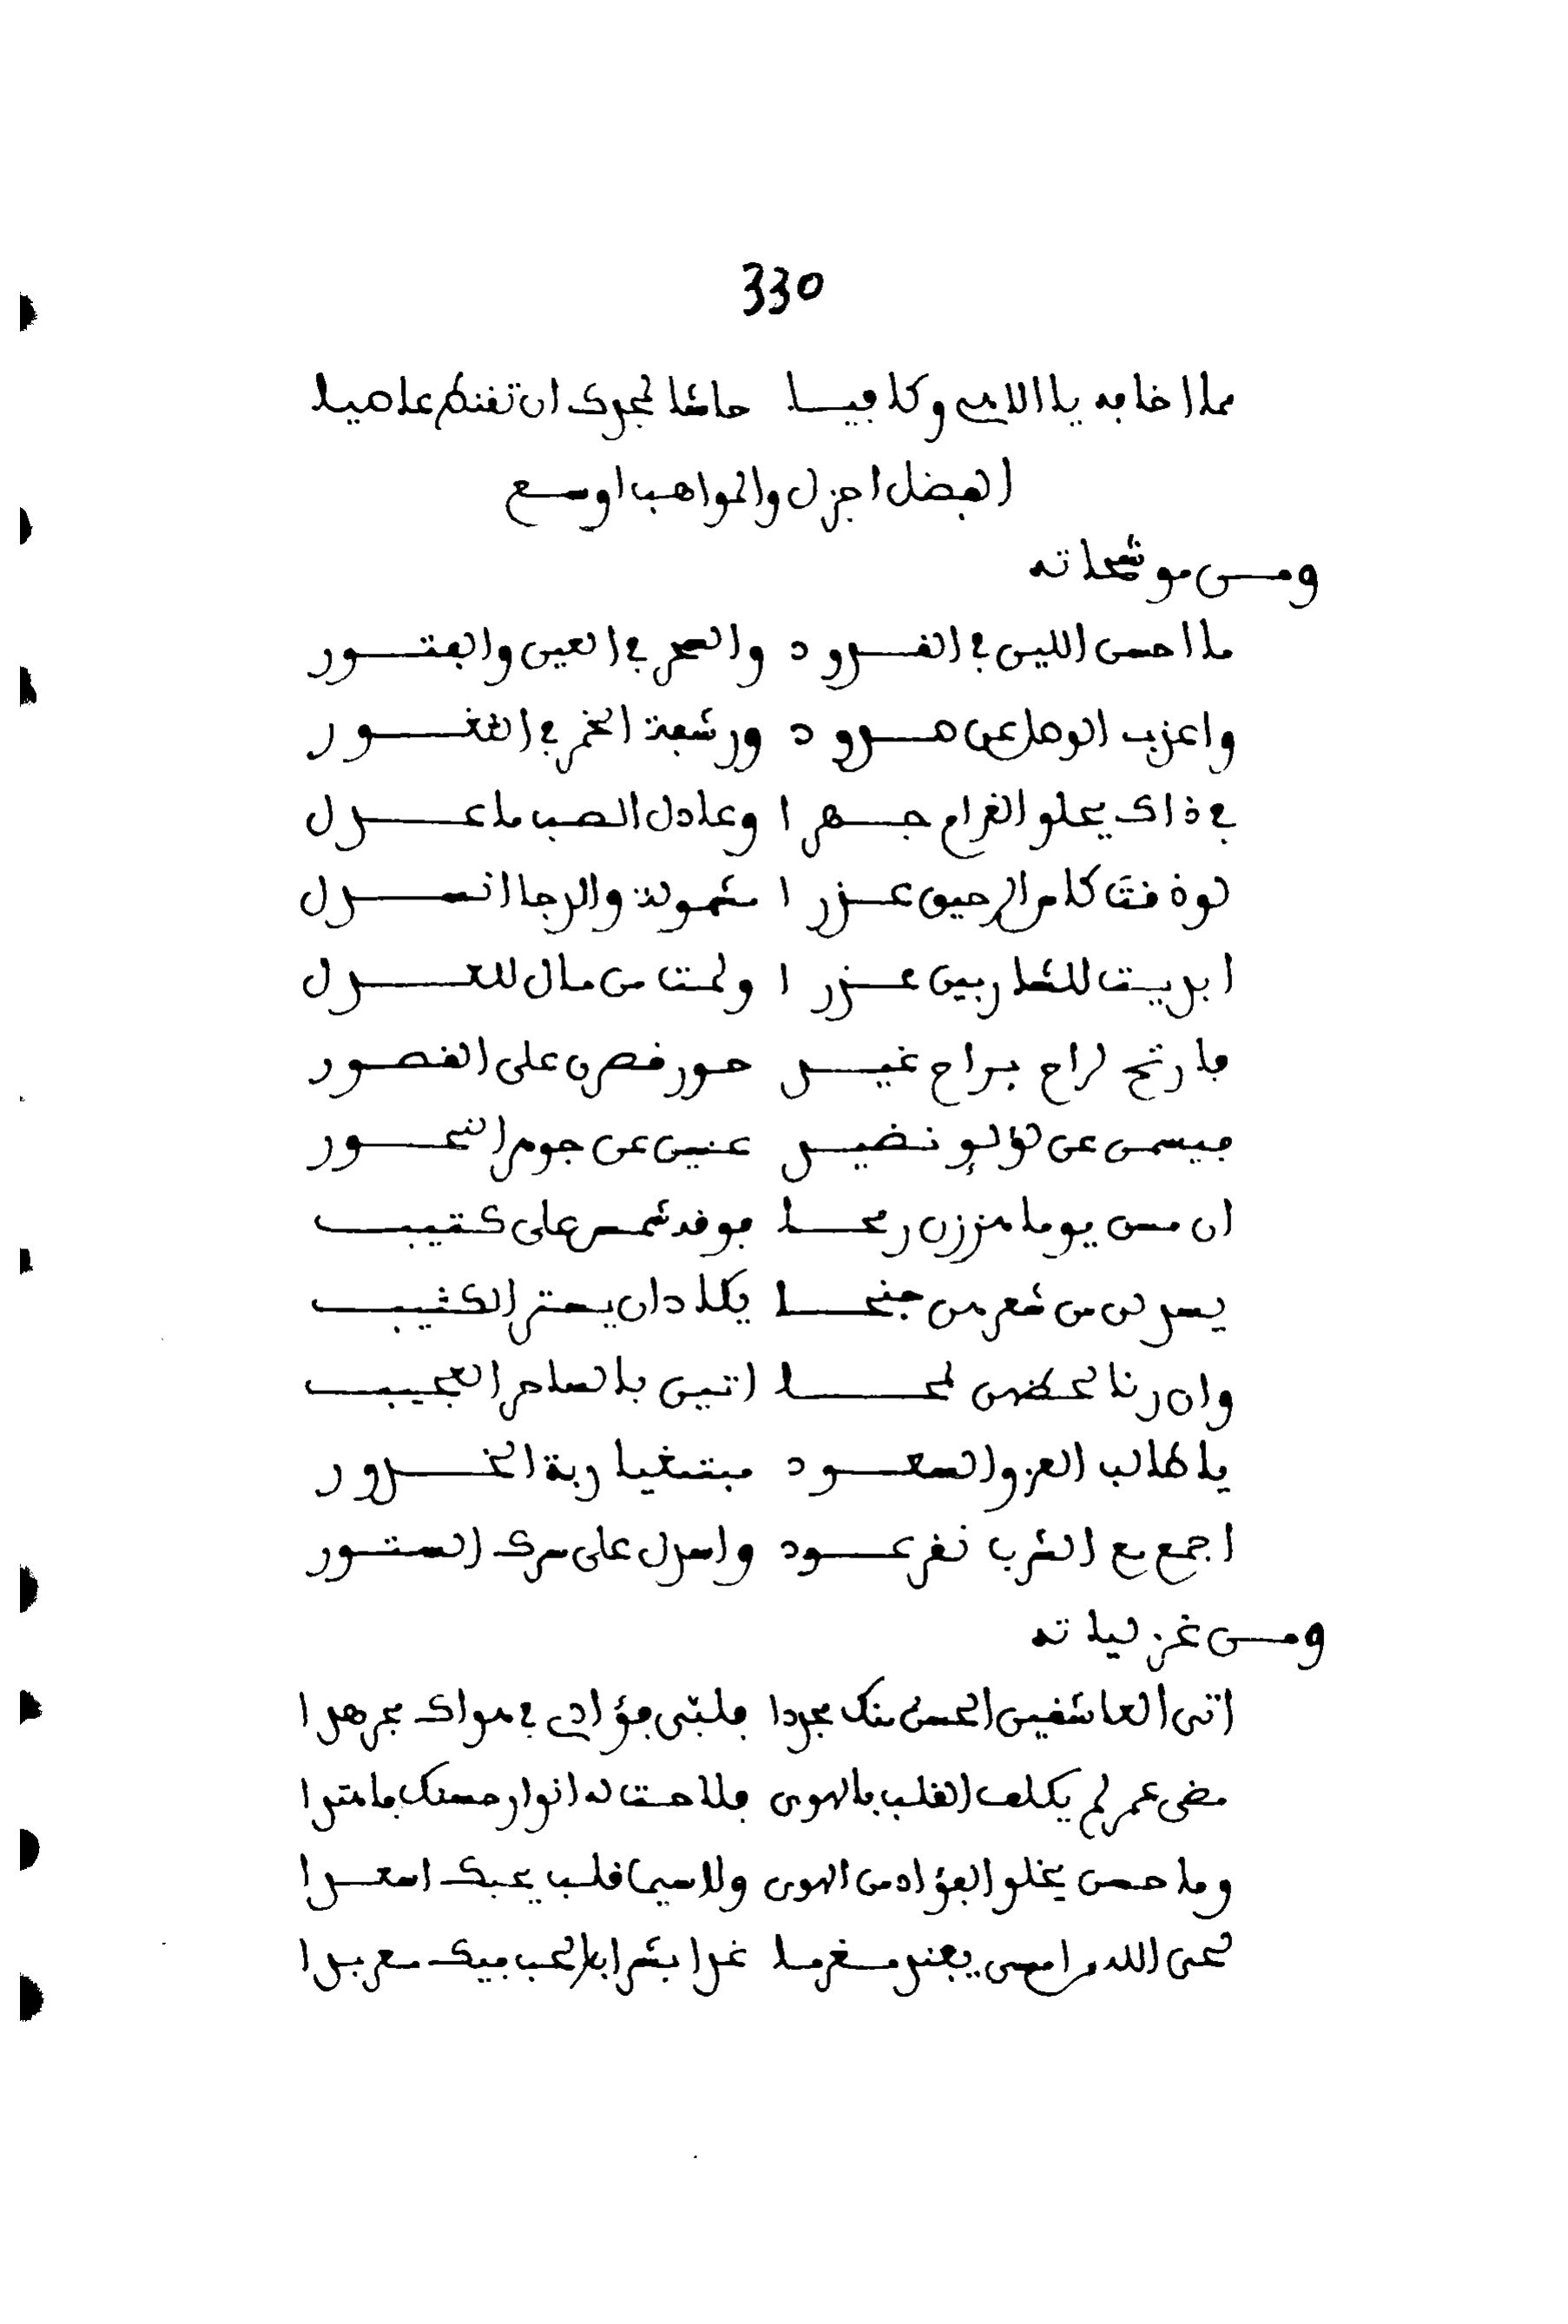 330
مما اخافه يا الاهي وكافيا حاشا لجودك ان تقنط عاصيا
الفضل اجزل والمواهب اوسع
ومن موشحاته
ما احسن اللين في القدود والسحر في العين والفتور
واعذب الوصل عن صدود ورشفة الخمر في الثغور
في ذاك يحلو الغرام جهرا وعادل الصب ما عدل
لو ذقت كاس الرحيق عذرا مشمولة والرجا انسدل
ابديت للشاربين عذرا ولمت من مال للعذل
فارتح لراح براح غيد حور قصرن على القصور
فيسمن عن لؤلؤ نضيد غنين عن جوهر النحور
ان مسن يوما هززن رمحا فوقه شمس على كثيب
يسدلن من شعرهن جنحا يكاد ان يستر الكثيب
وان رنا لحظهن لمحا اتين بالساحر العجيب
يا طالب العز والسعود مبتغيا ربة الخدور
اجمع مع الشرب نقر عود واسدل على سرك الستور
ومن غزلياته
اتى العاشقين الحسن منك مجردا فلبى فؤادي في هواك مجرهدا
مضى عمر لم يكلف القلب بالهوى فلاحت له انوار حسنك فاهتدا
وما حسن يخلو الفؤاد من الهوى ولا سيما قلب بحبك اسعدا
لحى الله من يفند مغرما غدا بشراب الحب فيك معربدا